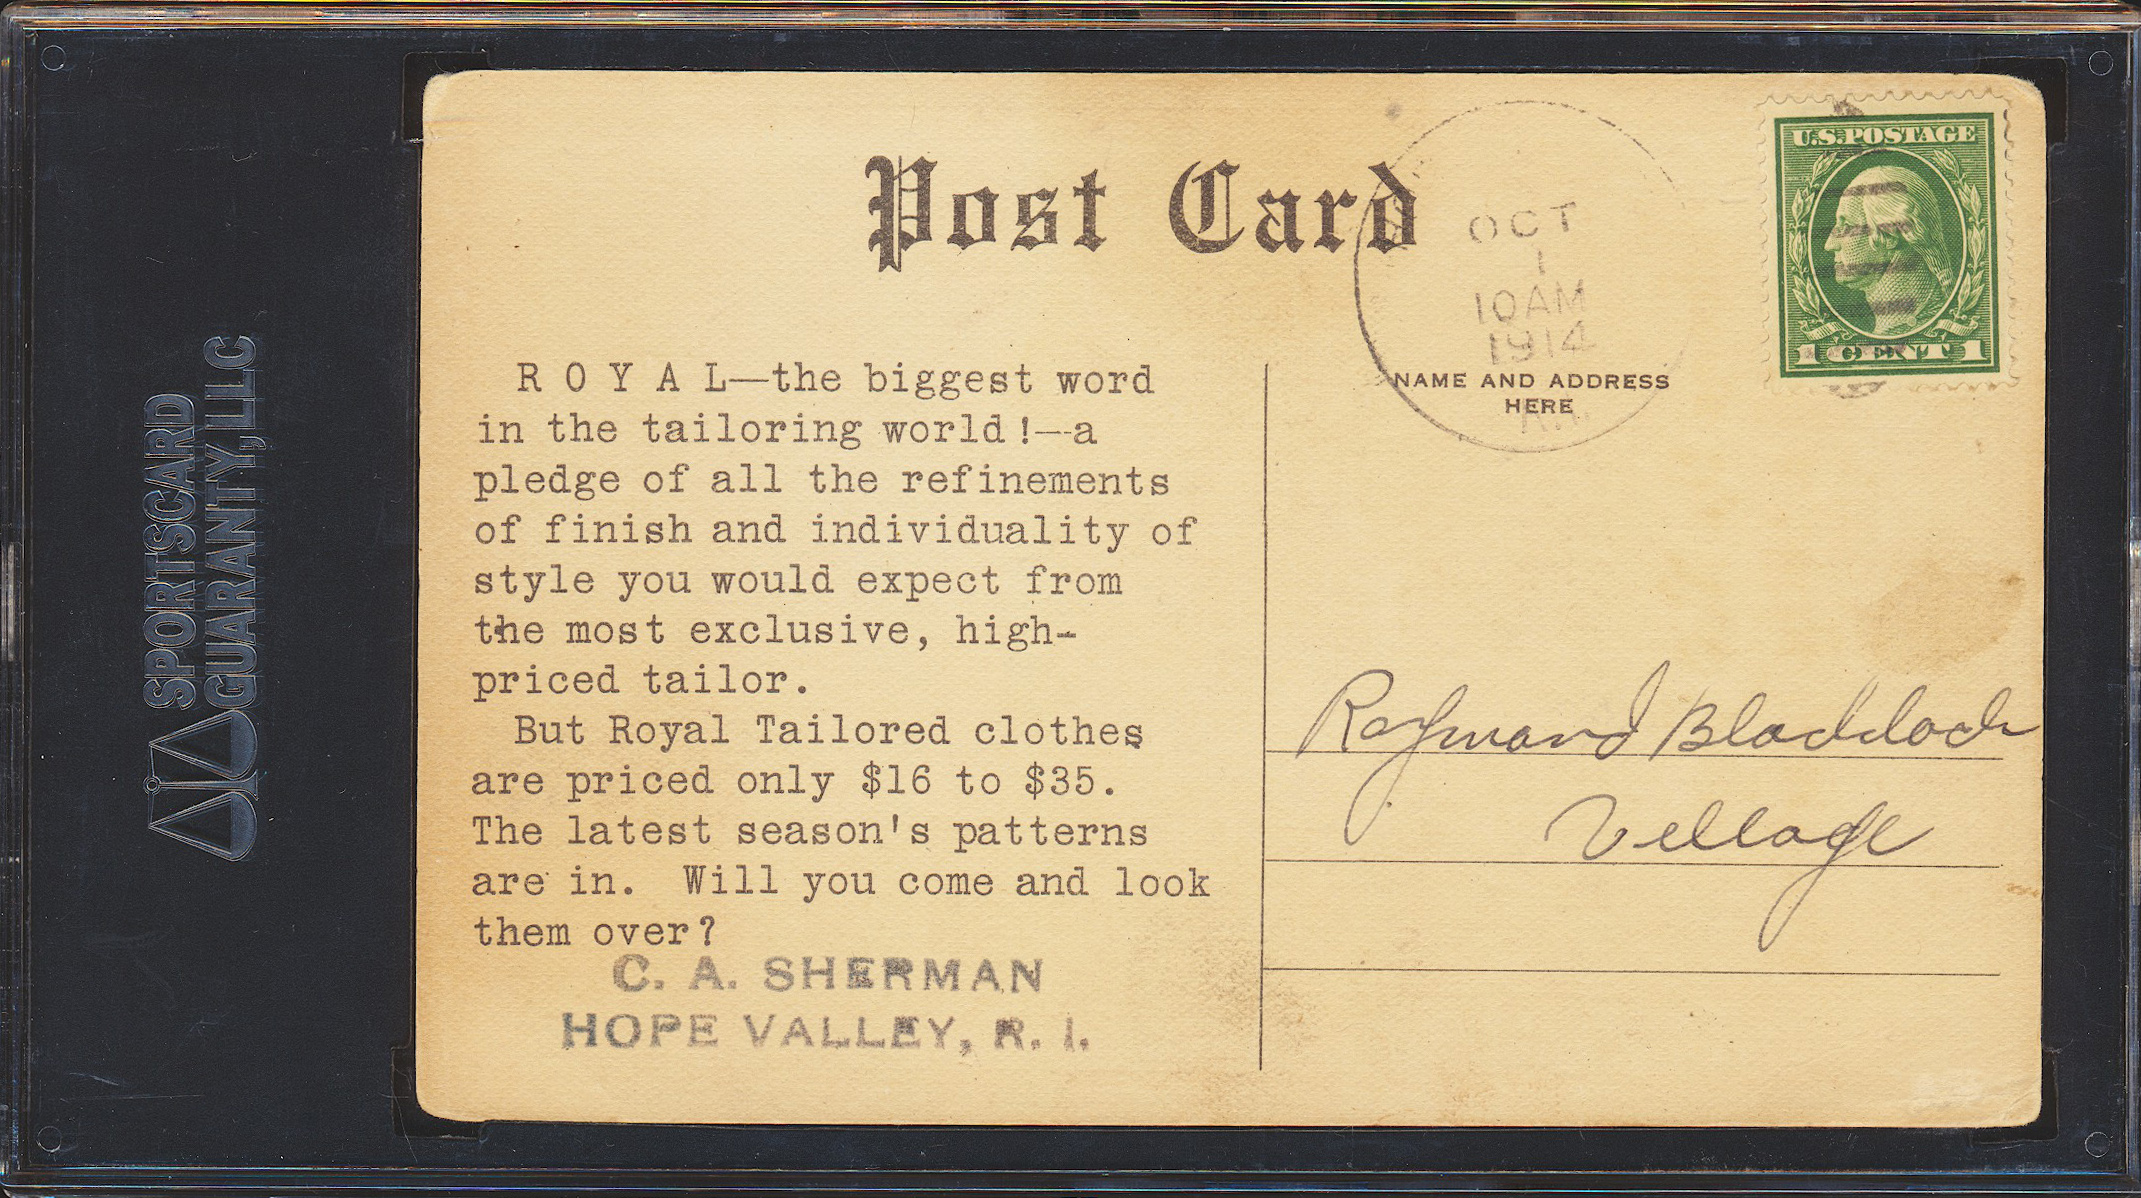 SPORTSCARD
GUARANTY, LLC
Post Card
OCT
1
10AM
1914
R.I.
U.S. POSTAGE
1 CENT 1
NAME AND ADDRESS
HERE
R O Y A L—the biggest word
in the tailoring world!—a
pledge of all the refinements
of finish and individuality of
style you would expect from
the most exclusive, high-
priced tailor.
But Royal Tailored clothes
are priced only $16 to $35.
The latest season's patterns
are in. Will you come and look
them over?
C. A. SHERMAN
HOPE VALLEY, R. I.
Raymond
Village